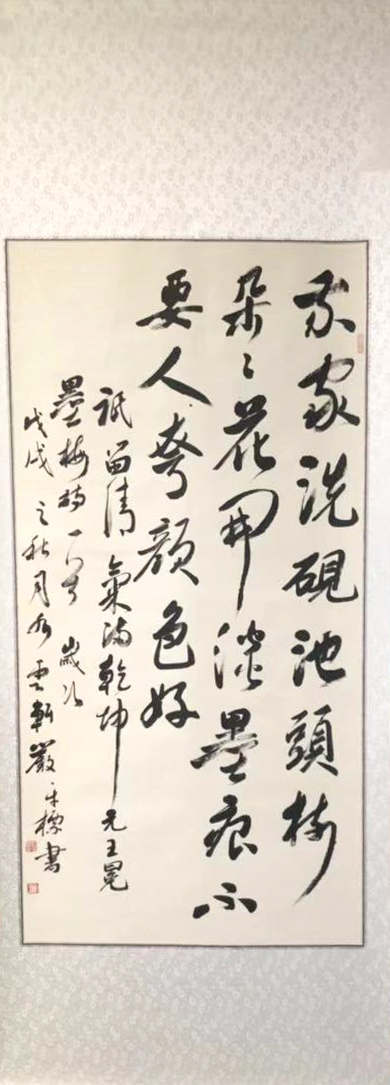 我家洗硯池頭樹
朵朵花開淡墨痕不
要人夸顏色好
祇留清氣滿乾坤 元王冕
墨梅詩一首 歲次
戊戌之秋月 雲軒嚴 標書